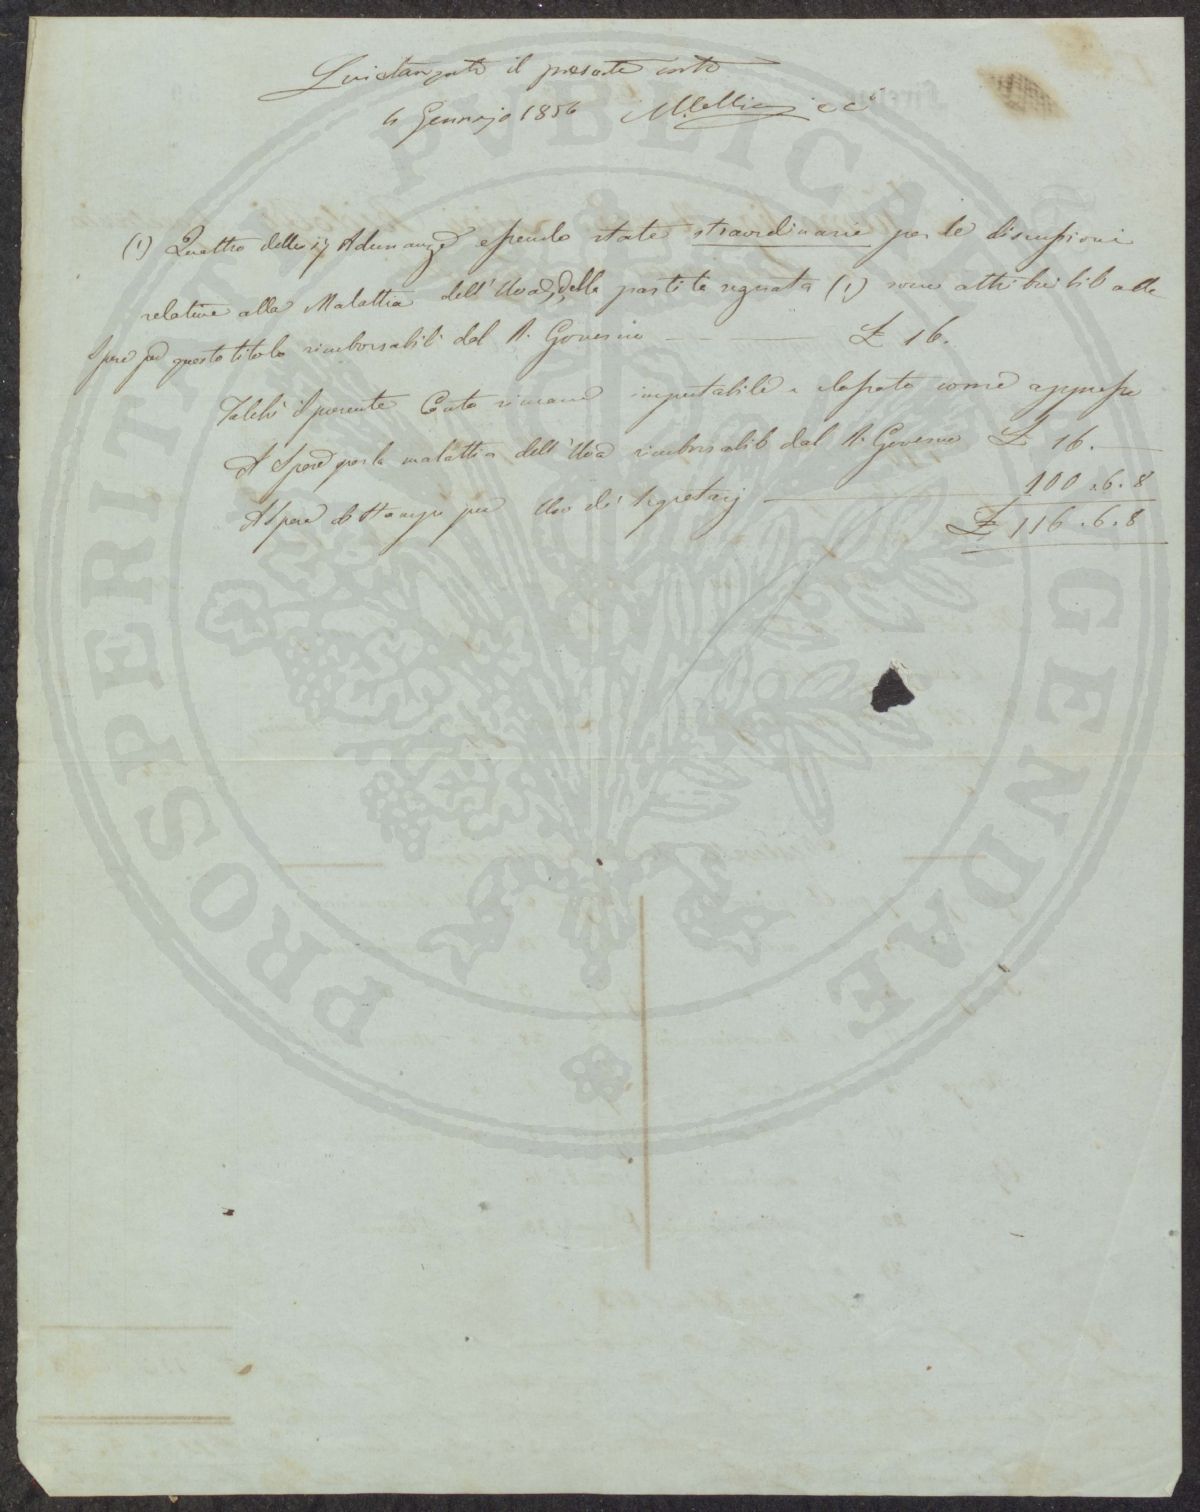 Quietanzato il presente conto
4 Gennajo 1856
(1) Quattro delle 17 Adunanze essendo state straordinarie per le discussioni
relative alla Malattia dell'Uva, della partita segnata (1) sono attribuibili alle
spese per questo titolo rimborsabili dal R. Governo — — — £ 16.
Talchè il presente Conto rimane imputabile e classato come appresso
A Spese per la malattia dell'Uva rimborsabili dal R. Governo £ 16. —
A Spese di Stampe per Uso de' Segretarj — 100.6.8
£ 116.6.8
PROSPERITATI PVBLICAE AVGENDAE